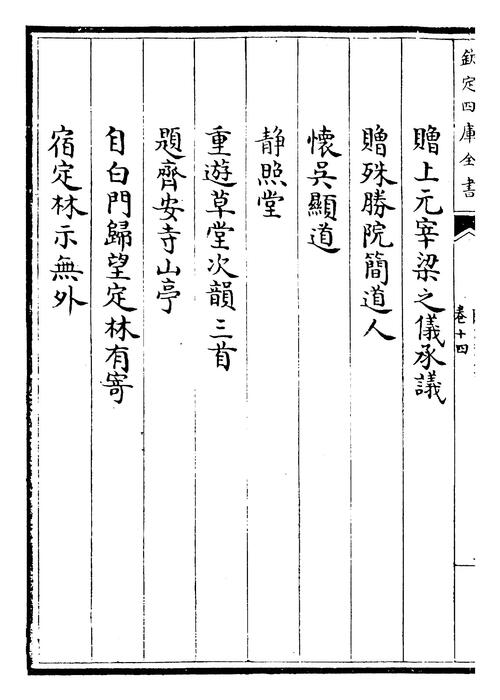 欽定四庫全書
卷十四
贈上元宰梁之儀承議
贈殊勝院簡道人
懷吳顯道
静照堂
重遊草堂次韻三首
題齊安寺山亭
自白門歸望定林有寄
宿定林示無外